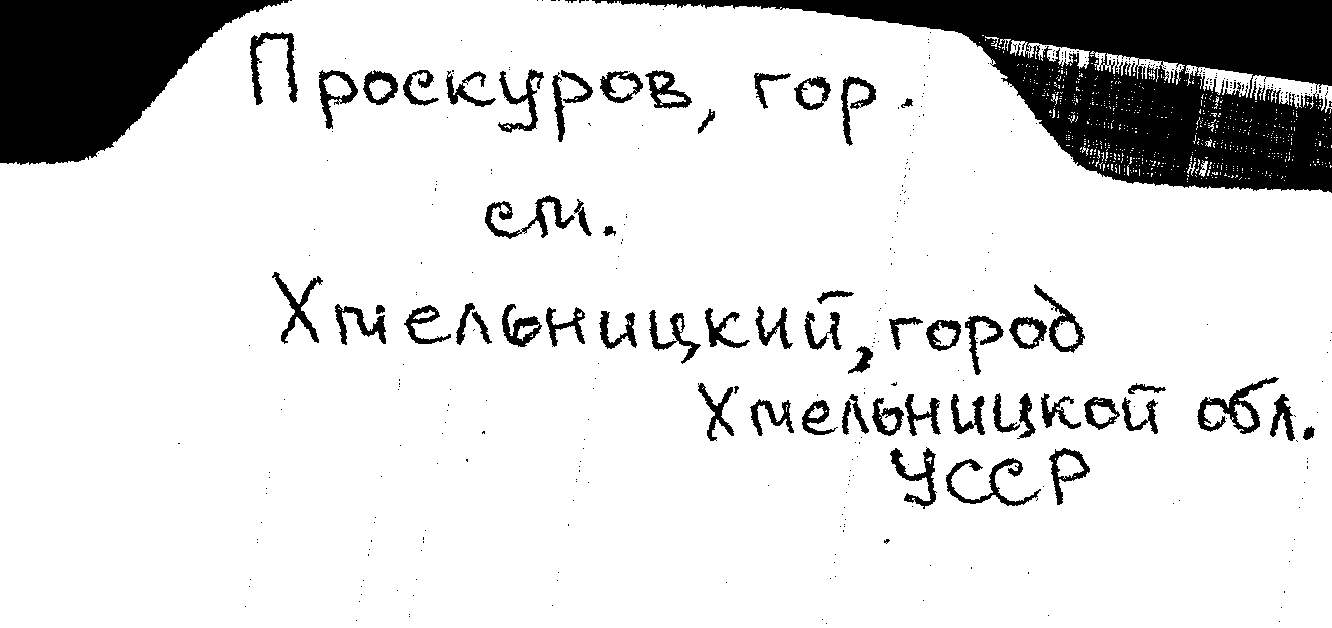 Проскуров, гор.
см.
Хмельницкий, город
Хмельницкой обл.
УССР